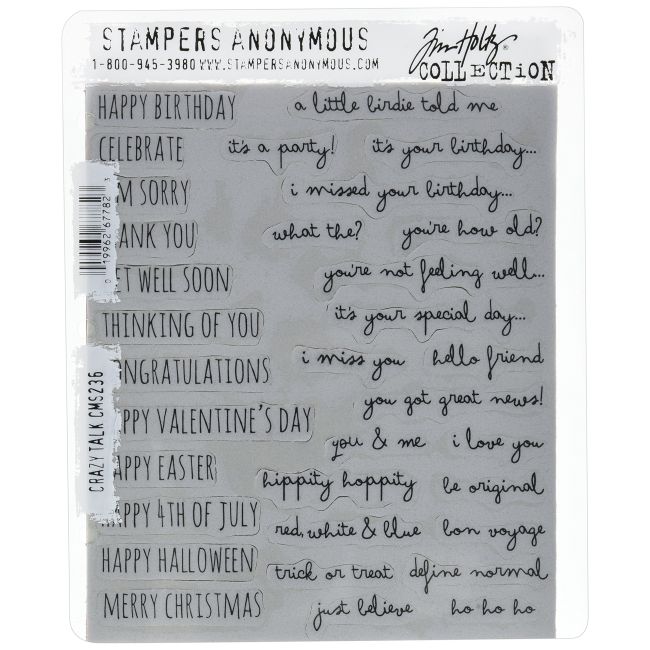 STAMPERS ANONYMOUS
1-800-945-3980 WWW.STAMPERSANONYMOUS.COM
Tim Holtz
COLLECTiON
HAPPY BIRTHDAY a little birdie told me
CELEBRATE it's a party! it's your birthday...
'M SORRY i missed your birthday...
ANK YOU what the? you're how old?
ET WELL SOON you're not feeling well...
THINKING OF YOU it's your special day...
NGRATULATIONS i miss you hello friend
you got great news!
PPY VALENTINE'S DAY
you & me i love you
APPY EASTER hippity hoppity be original
APPY 4TH OF JULY red, white & blue bon voyage
HAPPY HALLOWEEN trick or treat define normal
MERRY CHRISTMAS just believe ho ho ho
0 19962 67782 3
CRAZY TALK CMS236